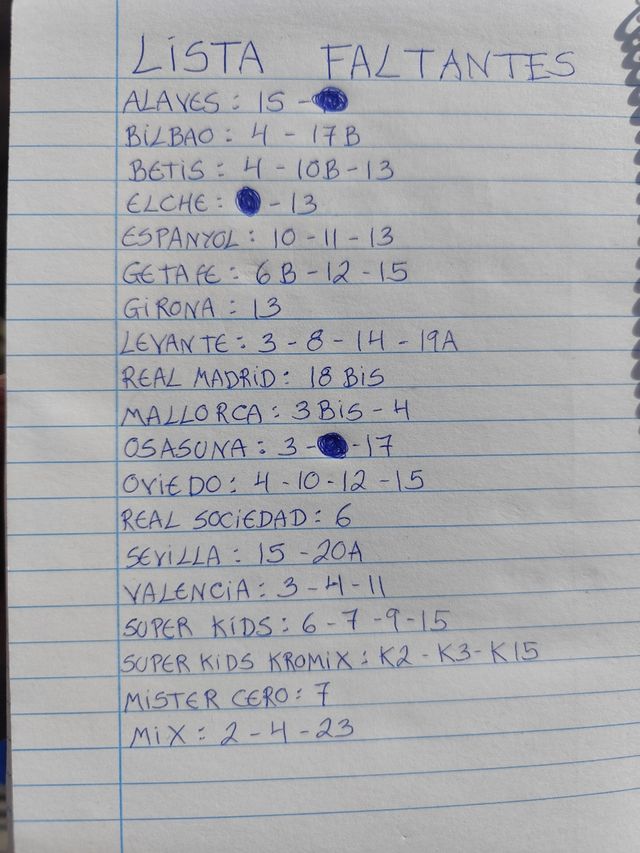 LISTA FALTANTES
ALAVES: 15 -
BILBAO: 4 - 17B
BETIS: 4 - 10B - 13
ELCHE: - 13
ESPANYOL: 10 - 11 - 13
GETAFE: 6B - 12 - 15
GIRONA: 13
LEVANTE: 3 - 8 - 14 - 19A
REAL MADRID: 18 BIS
MALLORCA: 3 BIS - 4
OSASUNA: 3 - - 17
OVIEDO: 4 - 10 - 12 - 15
REAL SOCIEDAD: 6
SEVILLA: 15 - 20A
VALENCIA: 3 - 4 - 11
SUPER KIDS: 6 - 7 - 9 - 15
SUPER KIDS KROMIX: K2 - K3 - K15
MISTER CERO: 7
MIX: 2 - 4 - 23